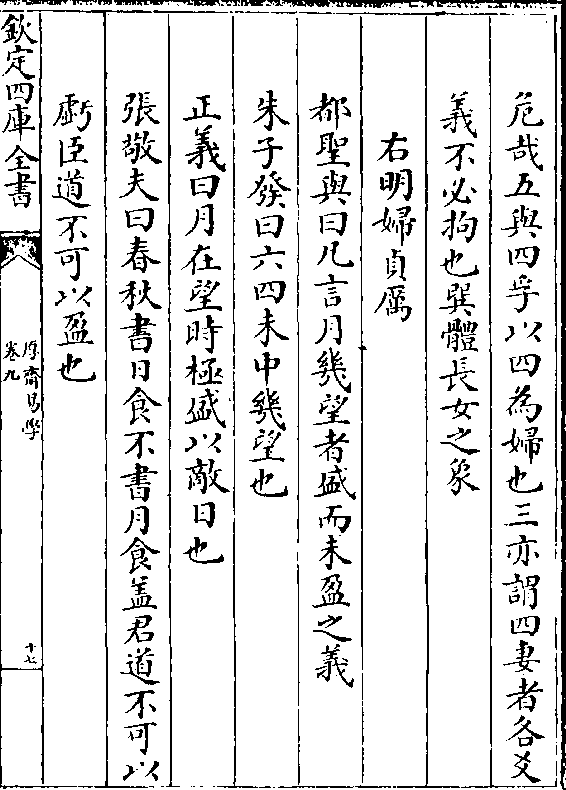 危哉五與四孚以四為婦也三亦謂四妻者各爻
義不必拘也巽體長女之象
右明婦貞厲
都聖與曰凡言月幾望者盛而未盈之義
朱子發曰六四未中幾望也
正義曰月在望時極盛以敵日也
張敬夫曰春秋書日食不書月食盖君道不可以
虧臣道不可以盈也
欽定四庫全書
厚齋易學
卷九
十七